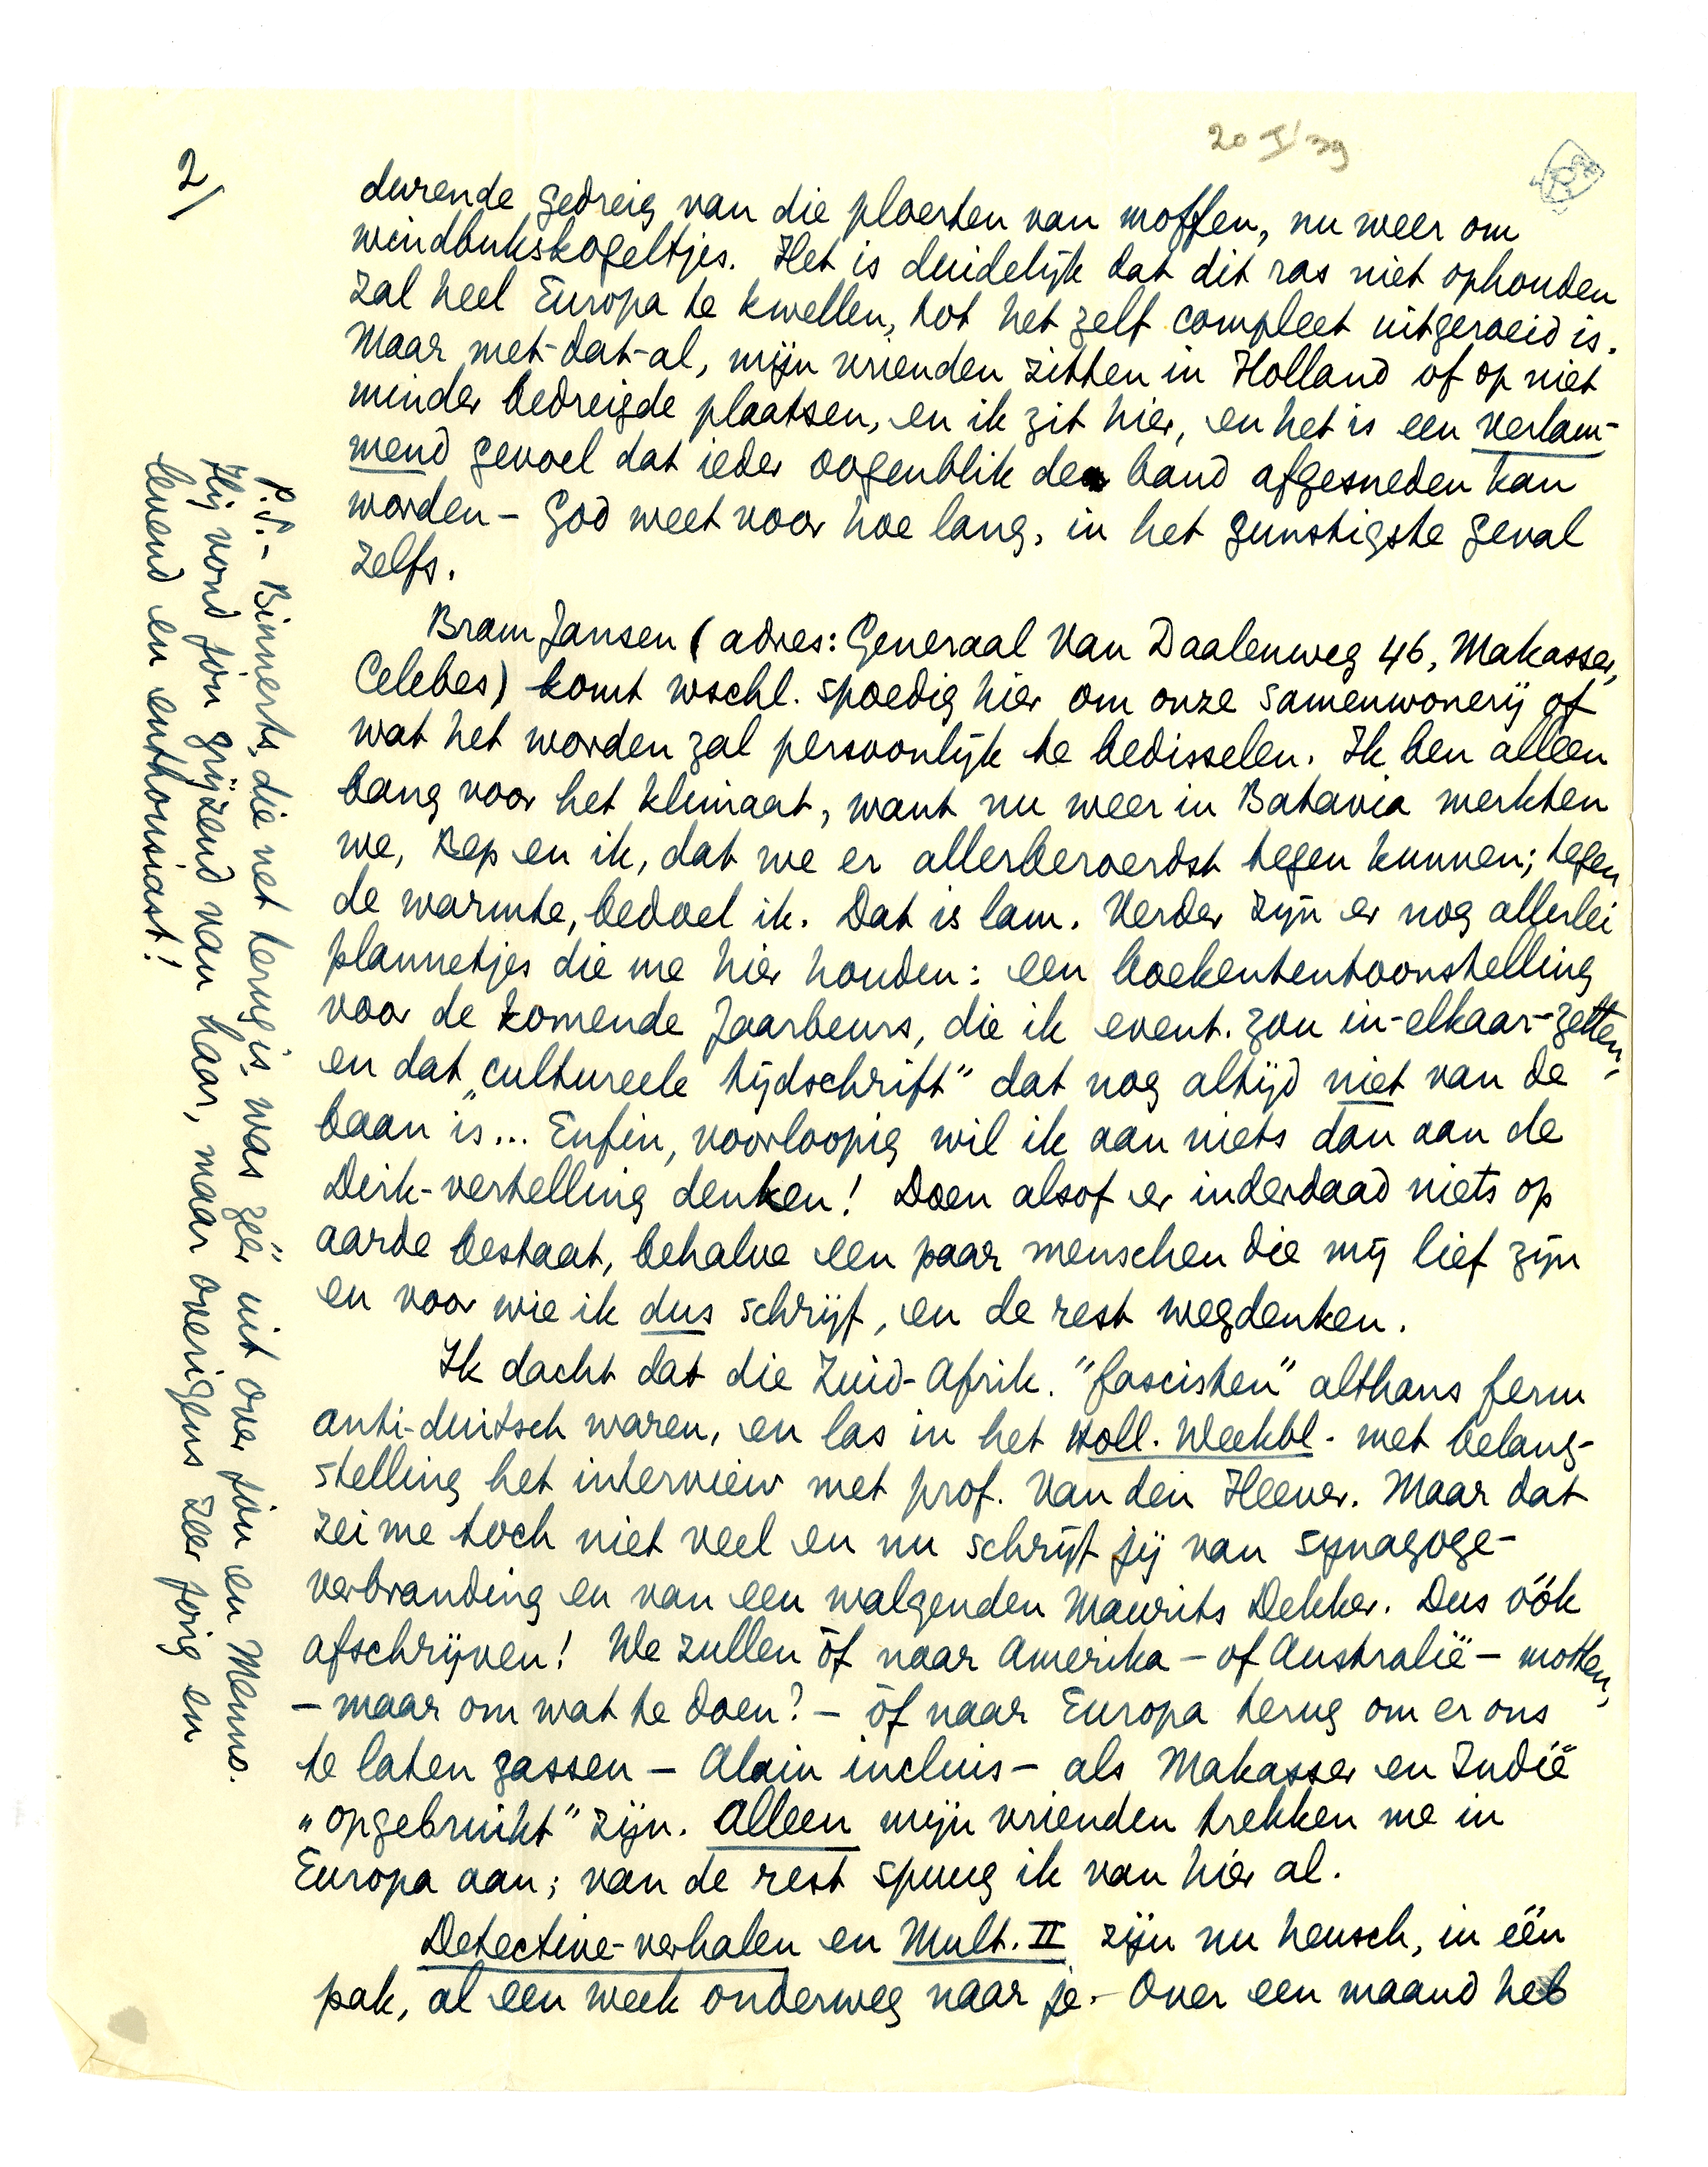 20 I/39
2/
durende gedreig van die ploerten van moffen, nu weer om
windbukskogeltjes. Het is duidelijk dat dit ras niet ophouden
zal heel Europa te kwellen, tot het zelf compleet uitgeroeid is.
Maar met-dat-al, mijn vrienden zitten in Holland of op niet
minder bedreigde plaatsen, en ik zit hier, en het is een verlam-
mend gevoel dat ieder oogenblik de band afgesneden kan
worden - God weet voor hoe lang, in het gunstigste geval
zelfs.
Bram Jansen (adres: Generaal Van Daalenweg 46, Makasser,
Celebes) komt wschl. spoedig hier om onze samenwonerij of
wat het worden zal persoonlijk te bedisselen. Ik ben alleen
bang voor het klimaat, want nu weer in Batavia merkten
we, Bep en ik, dat we er allerberoerdst tegen kunnen; tegen
de warmte, bedoel ik. Dat is lam. Verder zijn er nog allerlei
plannetjes die me hier houden: een boekententoonstelling
voor de komende Jaarbeurs, die ik event. zou in-elkaar-zetten,
en dat „cultureele tijdschrift" dat nog altijd niet van de
baan is... Enfin, voorloopig wil ik aan niets dan aan de
Dirk-vertelling denken! Doen alsof er inderdaad niets op
aarde bestaat, behalve een paar menschen die mij lief zijn
en voor wie ik dus schrijf, en de rest wegdenken.
Ik dacht dat die Zuid-Afrik. "fascisten" althans ferm
anti-duitsch waren, en las in het Holl. Weekbl. met belang-
stelling het interview met prof. Van den Heever. Maar dat
zei me toch niet veel en nu schrijft jij van synagoge-
verbranding en van een walgenden Maurits Dekker. Dus óók
afschrijven! We zullen òf naar Amerika - of Australië - motten,
- maar om wat te doen? - òf naar Europa terug om er ons
te laten gassen - Alain incluis - als Makasser en Indië
„opgebruikt" zijn. Alleen mijn vrienden trekken me in
Europa aan; van de rest spuug ik van hier al.
Detective-verhalen en Mult. II zijn nu heusch, in één
pak, al een week onderweg naar je. - Over een maand heb
P.S. - Binnerts, die net terug is, was zéér uit over jou en Menno.
Hij vond jou grijzend van haar, maar overigens zeer jong en
levend en enthousiast!